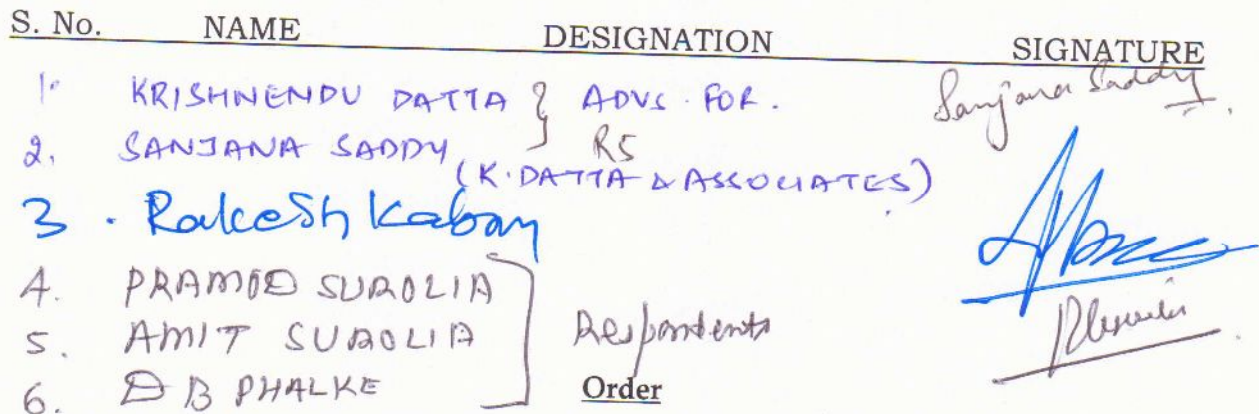 S. No. NAME DESIGNATION SIGNATURE
1. KRISHNENDU DATTA } ADVS. FOR. Sanjana Saddy
2. SANJANA SADDY R5
(K. DATTA & ASSOCIATES)
3. Rakesh
4. PRAMOD SUROLIA
5. AMIT SUROLIA Respondents
6. D B PHALKE
Order